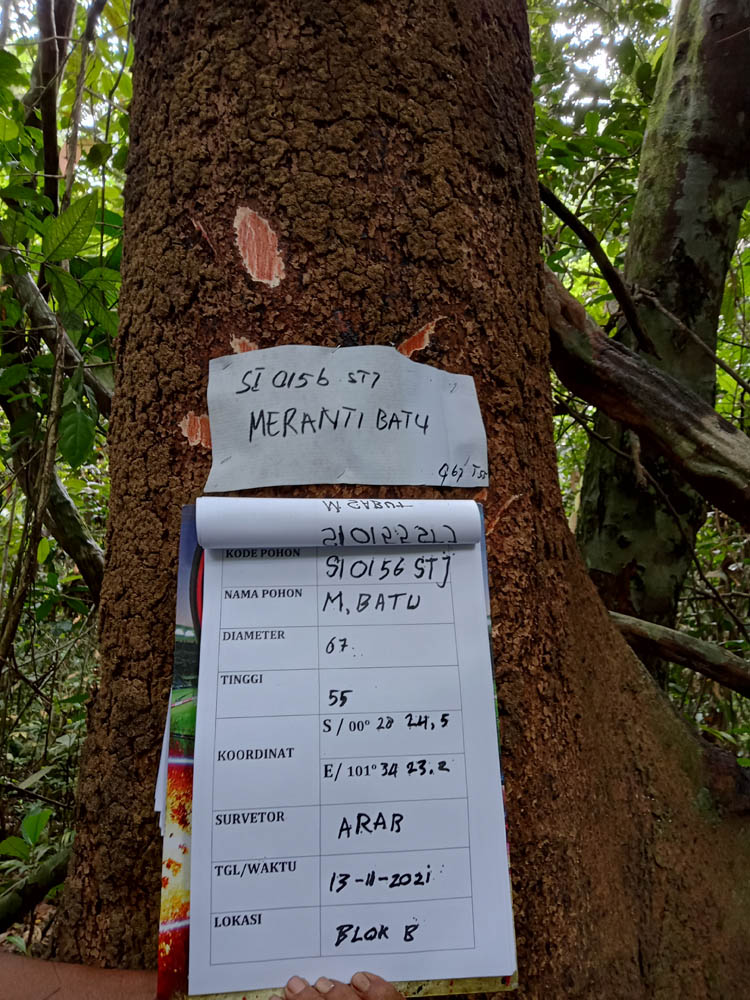 SI 0156 STJ
MERANTI BATU
Q67 T55
KODE POHON SI 0156 STJ
NAMA POHON M. BATU
DIAMETER 67
TINGGI 55
KOORDINAT
S / 00° 28 24,5
E/ 101° 34 23.2
SURVETOR ARAB
TGL/WAKTU 13-11-2021
LOKASI BLOK B